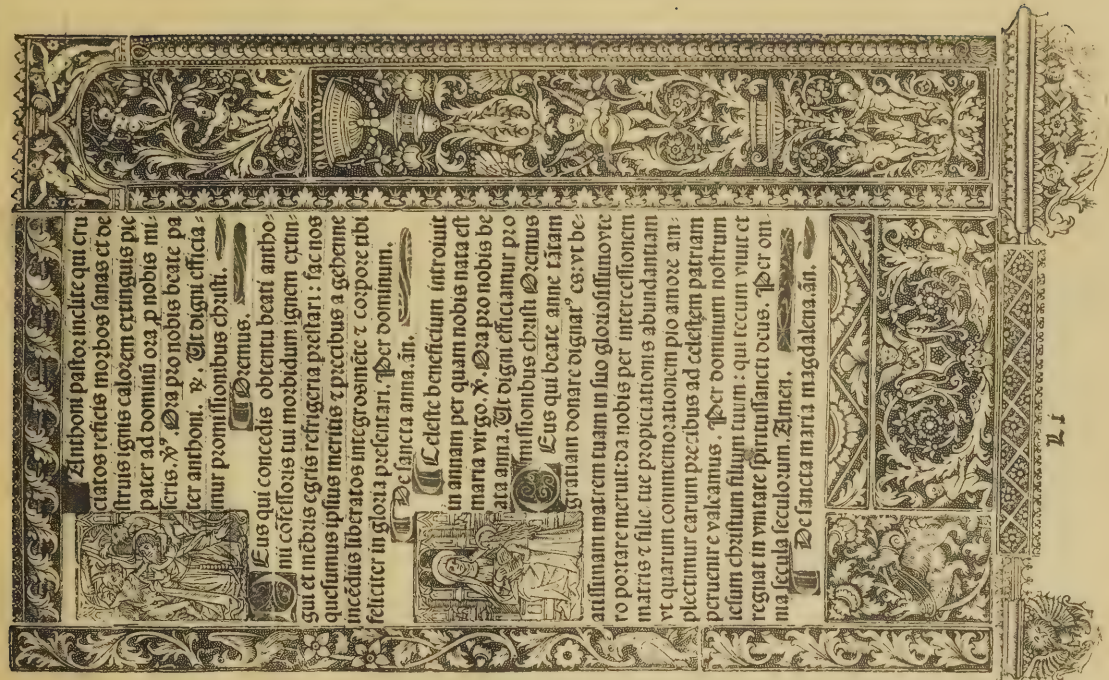 Anthoni pastor inclite qui cru
ciatos reficis morbos sanas et de
struis ignis calorem extinguis pie
pater ad dominū ora p nobis mi⸗
seris. ℣. Ora pro nobis beate pa
ter anthoni. ℟. Ut digni efficia⸗
mur promissionibus christi.
Oremus.
DEus qui concedis obtentu beati antho⸗
nii cōfessoris tui morbidum ignem extin⸗
gui et mēbris egris refrigeria prestari : fac nos
quesumus ipsius meritis ⁊ precibus a gehenne
incēdiis liberatos integros mēte ⁊ corpore tibi
feliciter in gloria presentari. Per dominum.
De sancta anna. añ.
Celeste beneficium introiuit
in annam per quam nobis nata est
maria virgo. ℣. Ora pro nobis be
ata anna. Ut digni efficiamur pro
missionibus christi Oremus
DEus qui beate anne tātam
gratiam donare dignatꝰ es: vt be⸗
atissimam mariam matrem tuam in suo gloriosissimo vte
ro portare meruit: da nobis per intercessionem
matris ⁊ filie tue propiciationis abundantiam
vt quarum commemorationem pio amore am⸗
plectimur earum precibus ad celestem patriam
peruenire valeamus . Per dominum nostrum
iesum christum filium tuum : qui tecum viuit et
regnat in vnitate spiritussancti deus. Per om⸗
nia secula seculorum. Amen.
De sancta maria magdalena. añ.